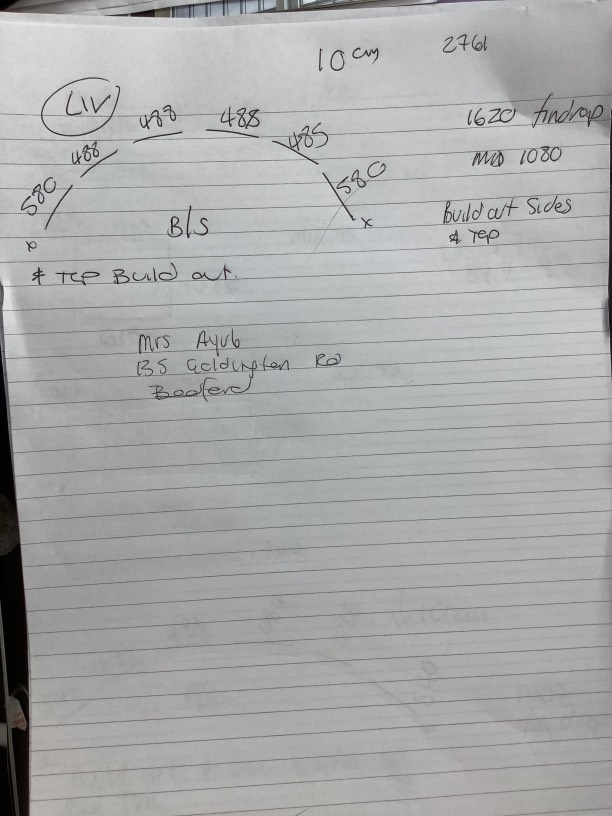 10cm 2761
LIV
580 488 488 488 485 580
1620 findrop
MID 1080
x B/S x
Build out Sides
& Top
& TOP Build out.
Mrs Ayub
135 Goldington RD
Bedford